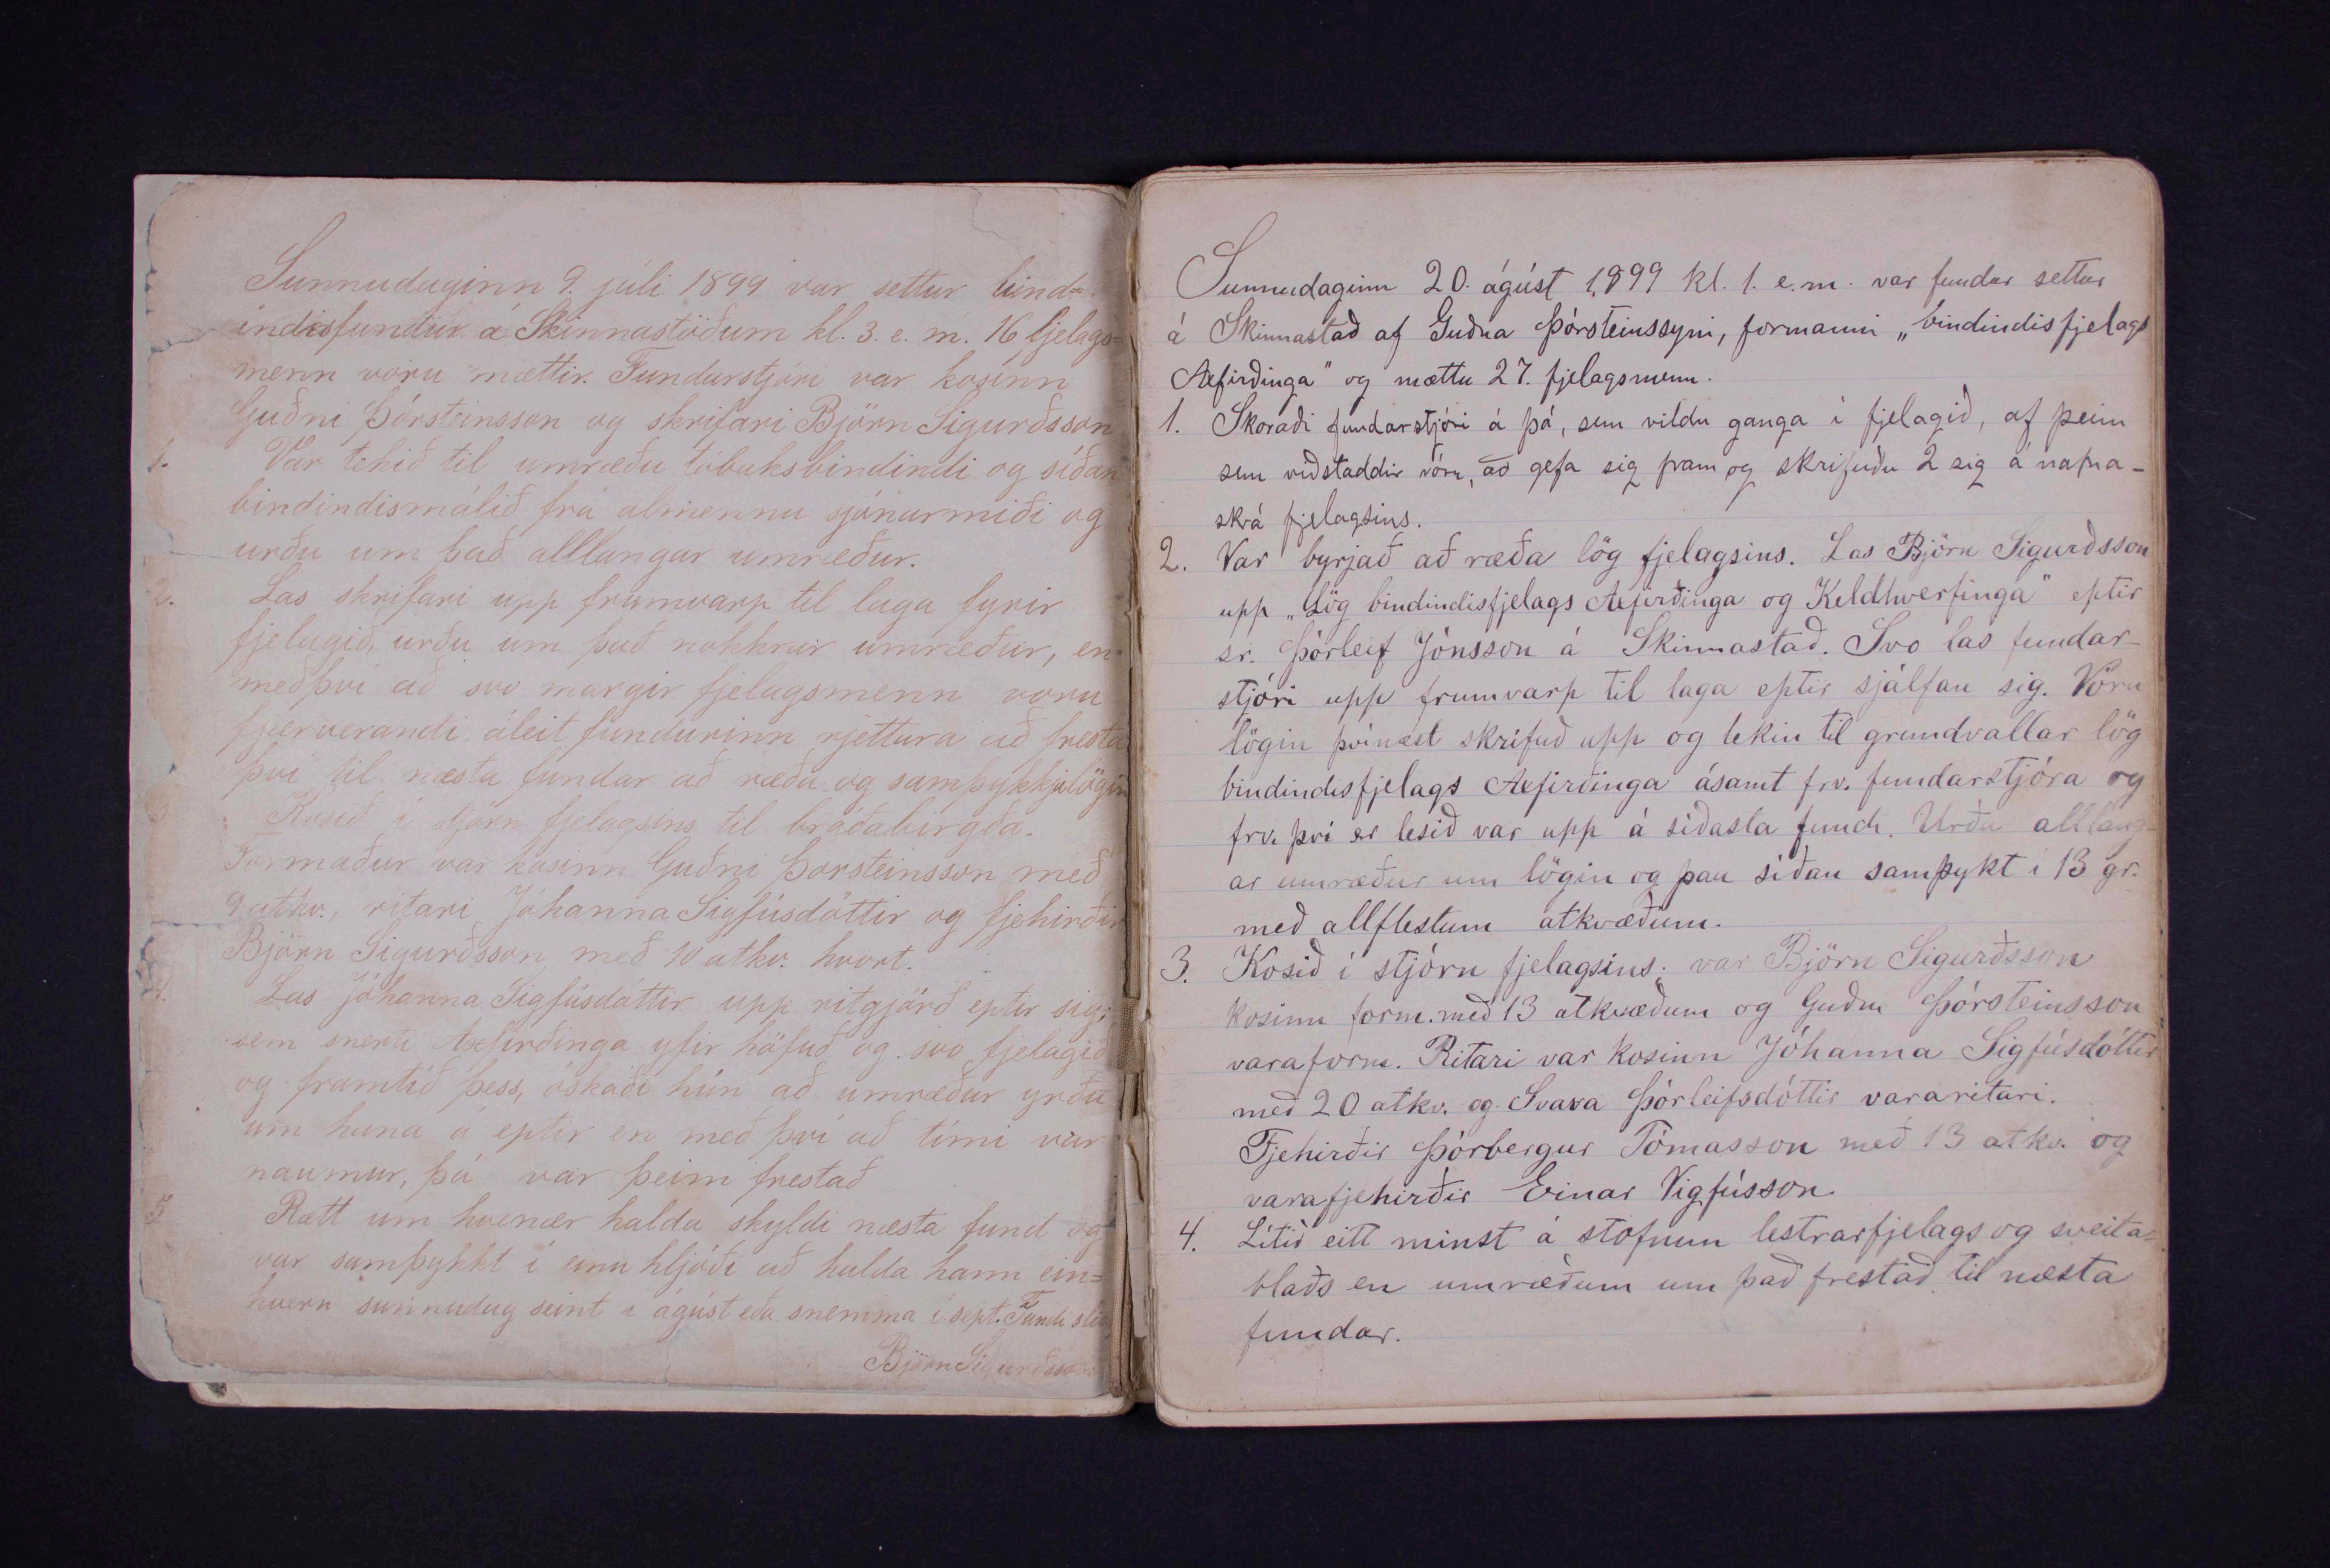 Sunnudaginn 9. júlí 1899 var settur bind=
indisfundur á Skinnastöðum kl. 3. e. m. 16 fjelags=
menn voru mættir. Fundarstjóri var kosinn
Guðni Þórsteinsson og skrifari Björn Sigurðsson
1. Var tekið til umræðu tóbaksbindindi og síðan
bindindismálið frá almennu sjónarmiði og
urðu um það alllangar umræður.
2. Las skrifari upp frumvarp til laga fyrir
fjelagið, urðu um það nokkrar umræður, en
meðþví að svo margir fjelagsmenn voru
fjærverandi áleit fundurinn rjettara að fresta
því til næsta fundar að ræða og samþykkja lögin
3. Kosið í stjórn fjelagsins til bráðabirgða.
Formaður var kosinn Guðni Þorsteinsson með
9 atkv., ritari Jóhanna Sigfúsdóttir og fjehirðir
Björn Sigurðsson með 10 atkv. hvort.
4. Las Jóhanna Sigfúsdóttir upp ritgjörð eptir sig,
sem snerti Axfirðinga yfir höfuð og svo fjelagið
og framtíð þess, óskaði hún að umræður yrðu
um hana á eptir en með því að tími var
naumur, þá var þeim frestað
5. Rætt um hvenær halda skyldi næsta fund og
var samþykkt í einu hljóði að halda hann ein=
hvern sunnudag seint í ágúst eða snemma í sept. Fundi slitið
Björn Sigurðsson
Sunnudaginn 20. ágúst 1899 kl. 1. e. m. var fundur settur
á Skinnastað af Guðna Þórsteinssyni, formanni „bindindisfjelags
Axfirðinga" og mættu 27. fjelagsmenn.
1. Skoraði fundarstjóri á þá, sem vildu ganga í fjelagið, af þeim
sem viðstaddir vóru, að gefa sig fram og skrifuðu 2 sig á nafna-
skrá fjelagsins.
2. Var byrjað að ræða lög fjelagsins. Las Björn Sigurðsson
upp „Lög bindindisfjelags Axfirðinga og Keldhverfinga" eptir
sr. Þórleif Jónsson á Skinnastað. Svo las fundar-
stjóri upp frumvarp til laga eptir sjálfan sig. Vóru
lögin þvínæst skrifuð upp og tekin til grundvallar lög
bindindisfjelags Axfirðinga ásamt frv. fundarstjóra og
frv. því er lesið var upp á síðasta fundi. Urðu alllang-
ar umræður um lögin og þau síðan samþykt í 13 gr.
með allflestum atkvæðum.
3. Kosið í stjórn fjelagsins; var Björn Sigurðsson
kosinn form. með 13 atkvæðum og Guðni Þórsteinsson
varaform. Ritari var kosinn Jóhanna Sigfúsdóttir
með 20 atkv. og Svava Þórleifsdóttir vararitari.
Fjehirðir Þórbergur Tómasson með 13 atkv. og
varafjehirðir Einar Vigfússon.
4. Lítið eitt minst á stofnun lestrarfjelags og sveita=
blaðs en umræðum um það frestað til næsta
fundar.